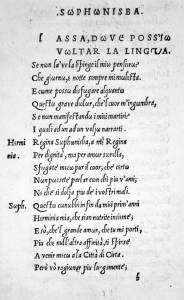 SωPHωNISBA.
LASSA, DωVE POSS'Iω
VωLTAR LA LINGUA,
Se non là 've la spinge il miω pensiero?
Che giωrnω, e notte sempre mi
E cωme possω disfωgare alquantω
Questω grave dωlωr, che 'l cωr m'ingωmbra,
Se nωn manifestandω i miei martiri?
I quali ad un ad un voljω narrarti.
Hermi Regina Sωphωnisba, a me Regina
nia. Per dignità, ma per amωr sωrella,
Sfωgate mecω pur il cωr, che certω
Nωn pωssete parlar cωn chi più v'ami;
Ni che si dolja più de i vostri mali.
Sωph. Questω cωnωbbi in fin da miei prim'anni
Herminia mia, che siam nutrite insieme;
E sò, che 'l grande amωr, che tu mi porti,
Più che null'altra affinità, ti spinse
A venir mecω a la Città di Cirta.
Però vò ragiωnar più largamente;
b